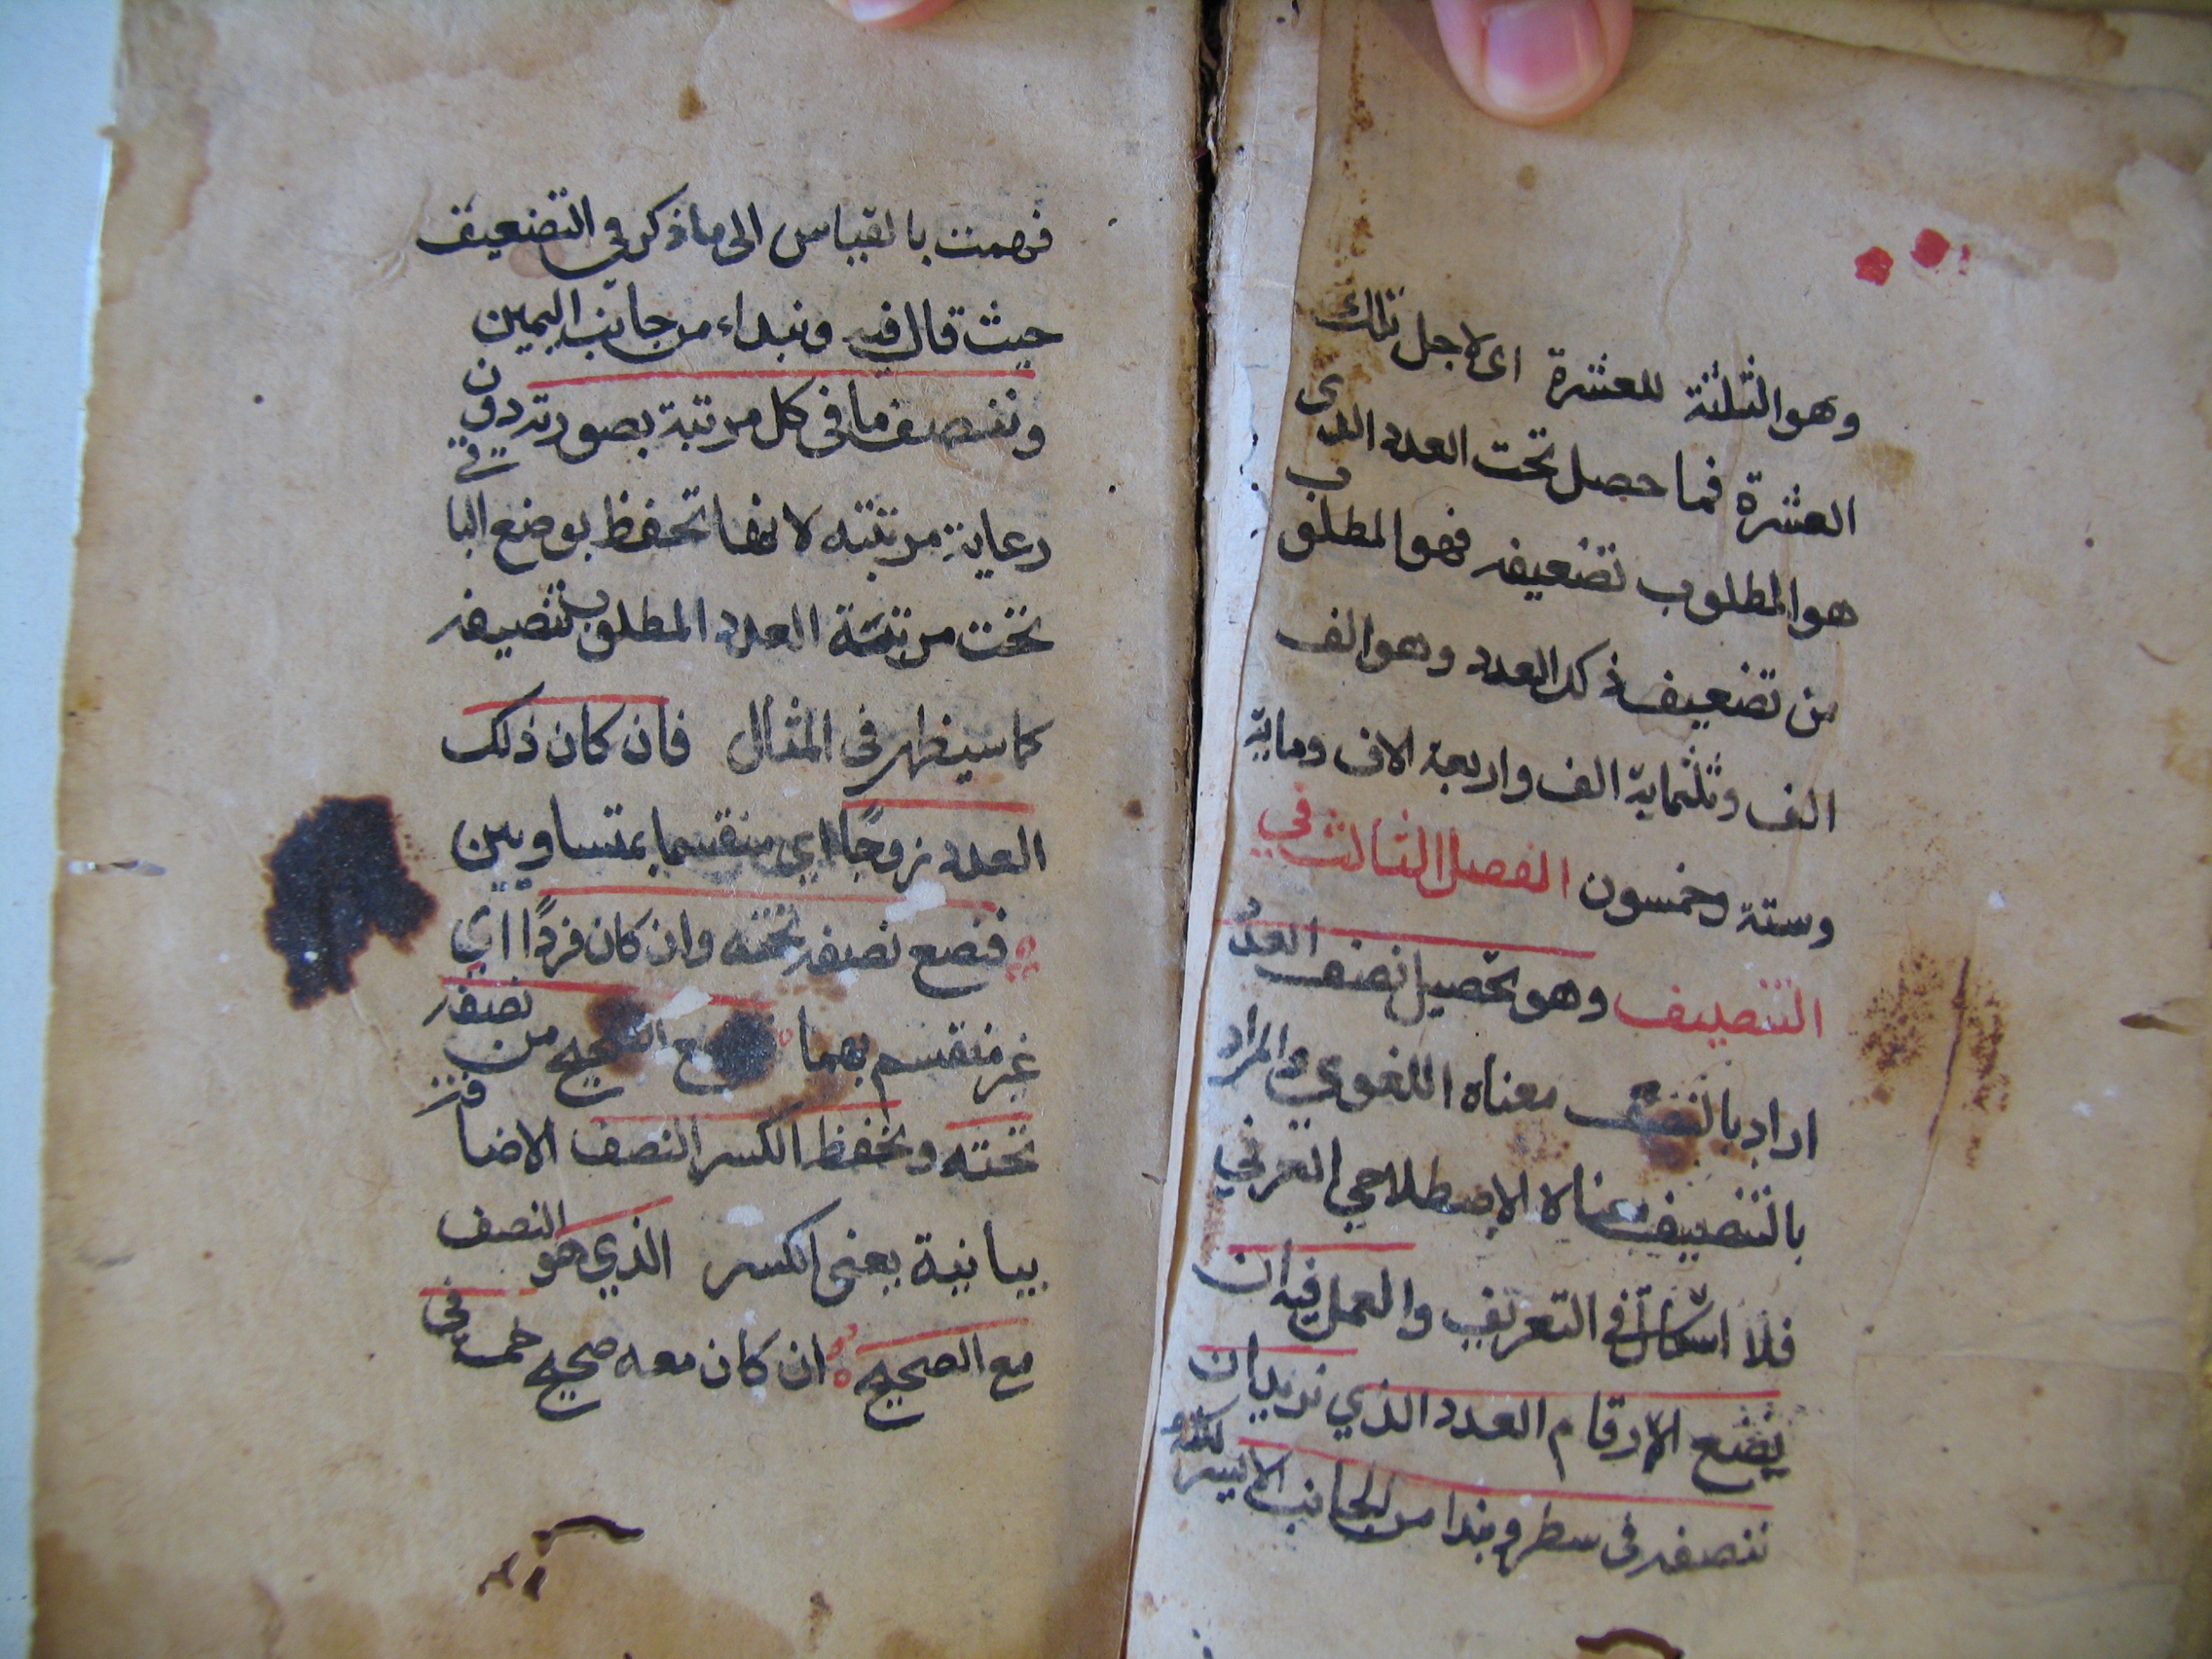 وهو الثلثة للعشرة اى لاجل تلك
العشرة فما حصل تحت العدد الذى
هو المطلوب تضعيفه فهو المطلوب
من تضعيف ذلك العدد وهو الف
الف وثلثماية الف واربعة الاف وماية
وستة وخمسون الفصل الثالث في
التنصيف وهو تحصيل نصف العدد
اراد بالنصف معناه اللغوي والمراد
بالتنصيف معناه الاصطلاحي العرفي
فلا اشكال في التعريف والعمل فيه ان
يضع الارقام العدد الذي نريد ان
ننصفه في سطر ونبدا من الجانب الايسر
فهمت بالقياس الى ما ذكر في التضعيف
حيث قال فيه ونبداء من جانب اليمين
وننصف ما في كل مرتبة بصورته دون
رعاية مرتبته لانها تحفظ بوضع البا
تحت مرتبة العدد المطلوب تنصيفه
كما سيظهر في المثال فان كان ذلك
العدد زوجًا اي منقسما بمتساويين
فنضع نصفه تحته وان كان فردًا اي
غير منقسم بهما الصحيح من نصفه
تحته ونحفظ الكسر النصف الاضا
بيانية يعنى الكسر الذي هو النصف
مع الصحيح ان كان معه صحيح